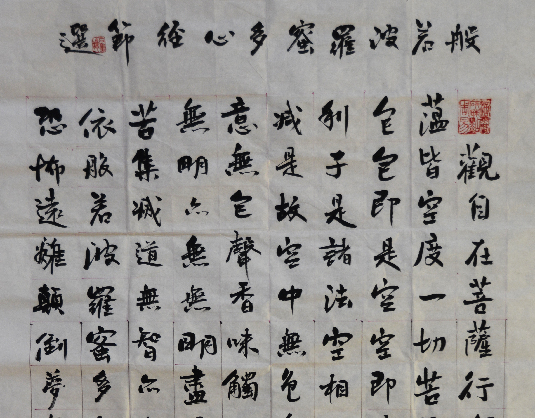 般若波羅蜜多心經節選
觀自在菩薩行
蘊皆空度一切苦
色色即是空空即
利子是諸法空相
減是故空中無色
意無色聲香味觸
無明亦無無明盡
苦集滅道無智亦
依般若波羅蜜多
恐怖遠離顛倒夢